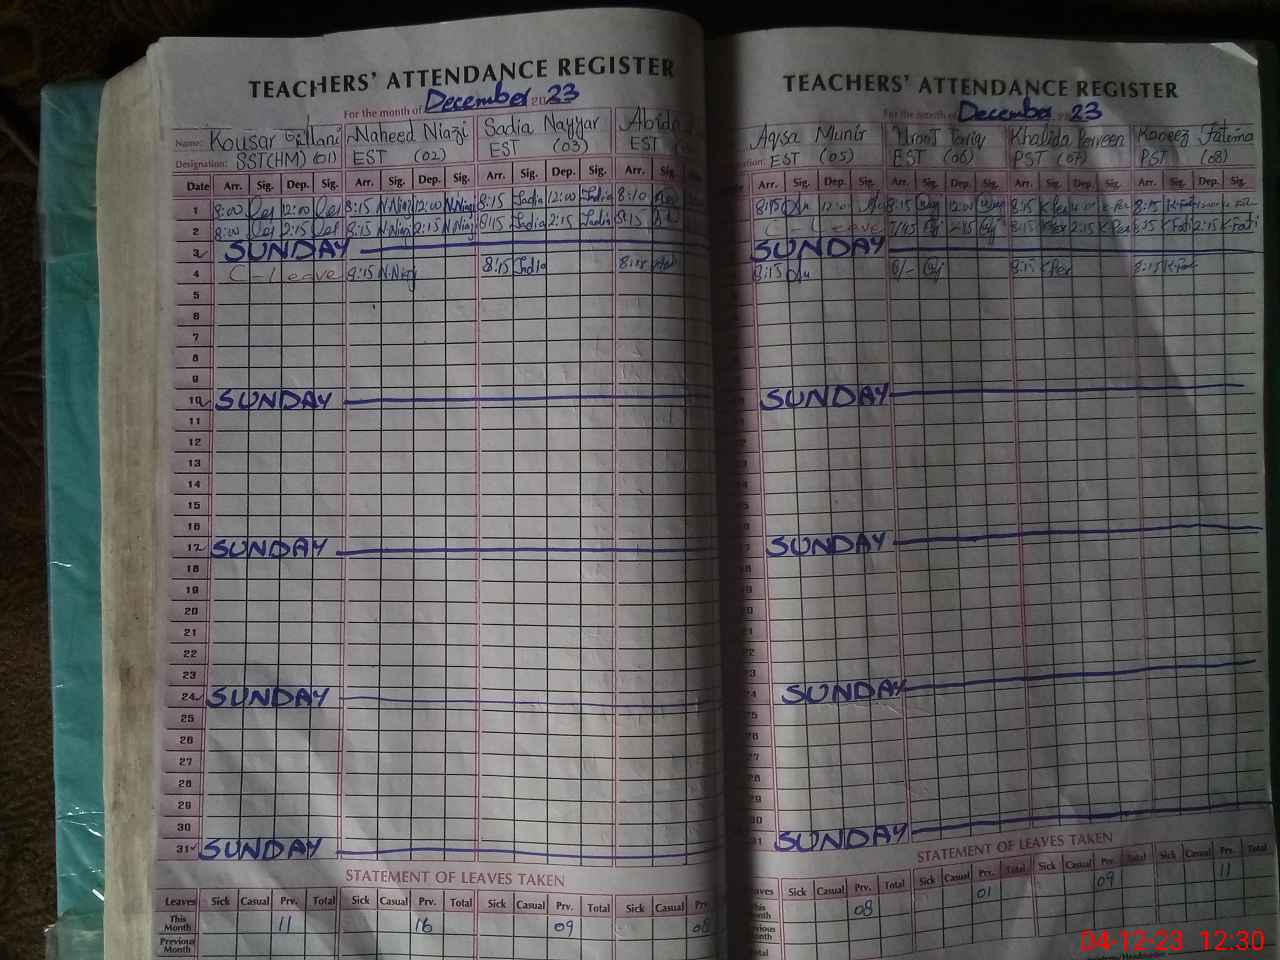 TEACHERS' ATTENDANCE REGISTER
For the month of December 2023
Name: Kousar Gillani Naheed Niazi Sadia Nayyar Abida
Designation: SST(HM) (01) EST (02) EST (03) EST
Date Arr. Sig. Dep. Sig. Arr. Sig. Dep. Sig. Arr. Sig. Dep. Sig. Arr. Sig.
1 8:00 12:00 8:15 N.Niazi 12:00 N.Niazi 8:15 Sadia 12:00 Sadia 8:10
2 8:00 2:15 8:15 N.Niazi 2:15 N.Niazi 8:15 Sadia 2:15 Sadia 8:15
3 SUNDAY
4 C - Leave 8:15 N.Niazi 8:15 Sadia 8:15
5
6
7
8
9
10 SUNDAY
11
12
13
14
15
16
17 SUNDAY
18
19
20
21
22
23
24 SUNDAY
25
26
27
28
29
30
31 SUNDAY
STATEMENT OF LEAVES TAKEN
Leaves Sick Casual Prv. Total Sick Casual Prv. Total Sick Casual Prv. Total Sick Casual Prv.
This Month 11 16 09 08
Previous Month
TEACHERS' ATTENDANCE REGISTER
For the month of December 2023
Aqsa Munir Tariq Khalida Perveen Kaneez Fatima
EST (05) EST (06) PST (07) PST (08)
Arr. Sig. Dep. Sig. Arr. Sig. Dep. Sig. Arr. Sig. Dep. Sig. Arr. Sig. Dep. Sig.
8:15 12:00 8:15 12:00 8:15 K.Per K.Per 8:15
C - Leave 7/45 2:15 8:15 K.Per 2:15 K.Per 2:15
SUNDAY
8:15 8/- 8:15 K.Per 8:15
SUNDAY
SUNDAY
SUNDAY
SUNDAY
STATEMENT OF LEAVES TAKEN
Leaves Sick Casual Prv. Total Sick Casual Prv. Total Sick Casual Prv. Total Sick Casual Prv. Total
This Month 08 01 09 11
Previous Month
Total
04-12-23 12:30